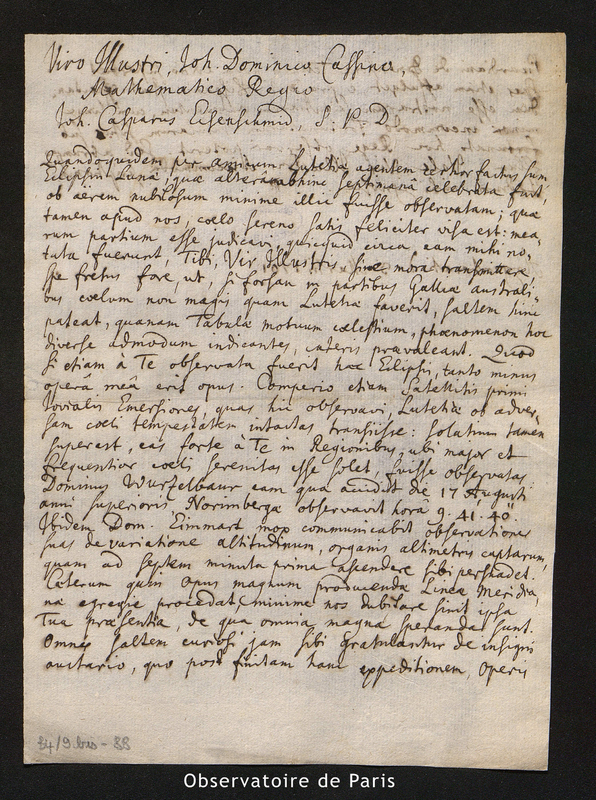 Viro Illustri, Joh. Dominico Cassino,
Mathematico Regio
Joh. Casparus Eisenschmid, S. P. D.
Quandoquidem per amicum Lutetiæ agentem certior factus sum
Eclipsin Lunæ, quæ alterâ abhinc septimanâ celebrata fuit,
ob aërem nubilosum minime illic fuisse observatam; quæ
tamen apud nos, cœlo sereno satis feliciter visa est: mea-
rum partium esse judicavi, quicquid circa eam mihi no-
tata fuerunt, Tibi, Vir Illustris, sine mora transmittere,
spe fretus fore, ut, si forsan in partibus Galliæ australi-
bus cœlum non magis quam Lutetiæ faverit, saltem hinc
pateat, quænam Tabulæ motuum cœlestium, phænomenon hoc
diverse admodum indicantes, cæteris prævaleant. Quod
si etiam à Te observata fuerit hæc Eclipsis, tanto minus
opera meâ erit opus. Comperio etiam Satellitis primi
Jovialis Emersiones, quas hic observavi, Lutetiæ ob adver-
sam cœli tempestatem intactas transiisse: solatium tamen
superest, eas forte à Te in Regionibus, ubi major et
frequentior cœli serenitas esse solet, fuisse observatas
Dominus Wurtzelbaur eam quæ accidit die 17 Augusti
anni superioris Norimbergæ observavit horâ 9. 41. 40".
Ibidem Dom. Eimmart mox communicabit observationes
suas de variatione altitudinum, organis altimetris captarum,
quam ad septem minuta prima ascendere sibi persuadet.
Cæterum quin opus magnum producendæ Lineæ Meridia-
næ egregie procedat, minime nos dubitare sinit ipsa
Tua præsentia, de qua omnia magna speranda sunt.
Omnes saltem curiosi jam sibi gratulantur de insigni
auctario, quo post finitam hanc expeditionem, Operis
24/9 bis - 88
Observatoire de Paris